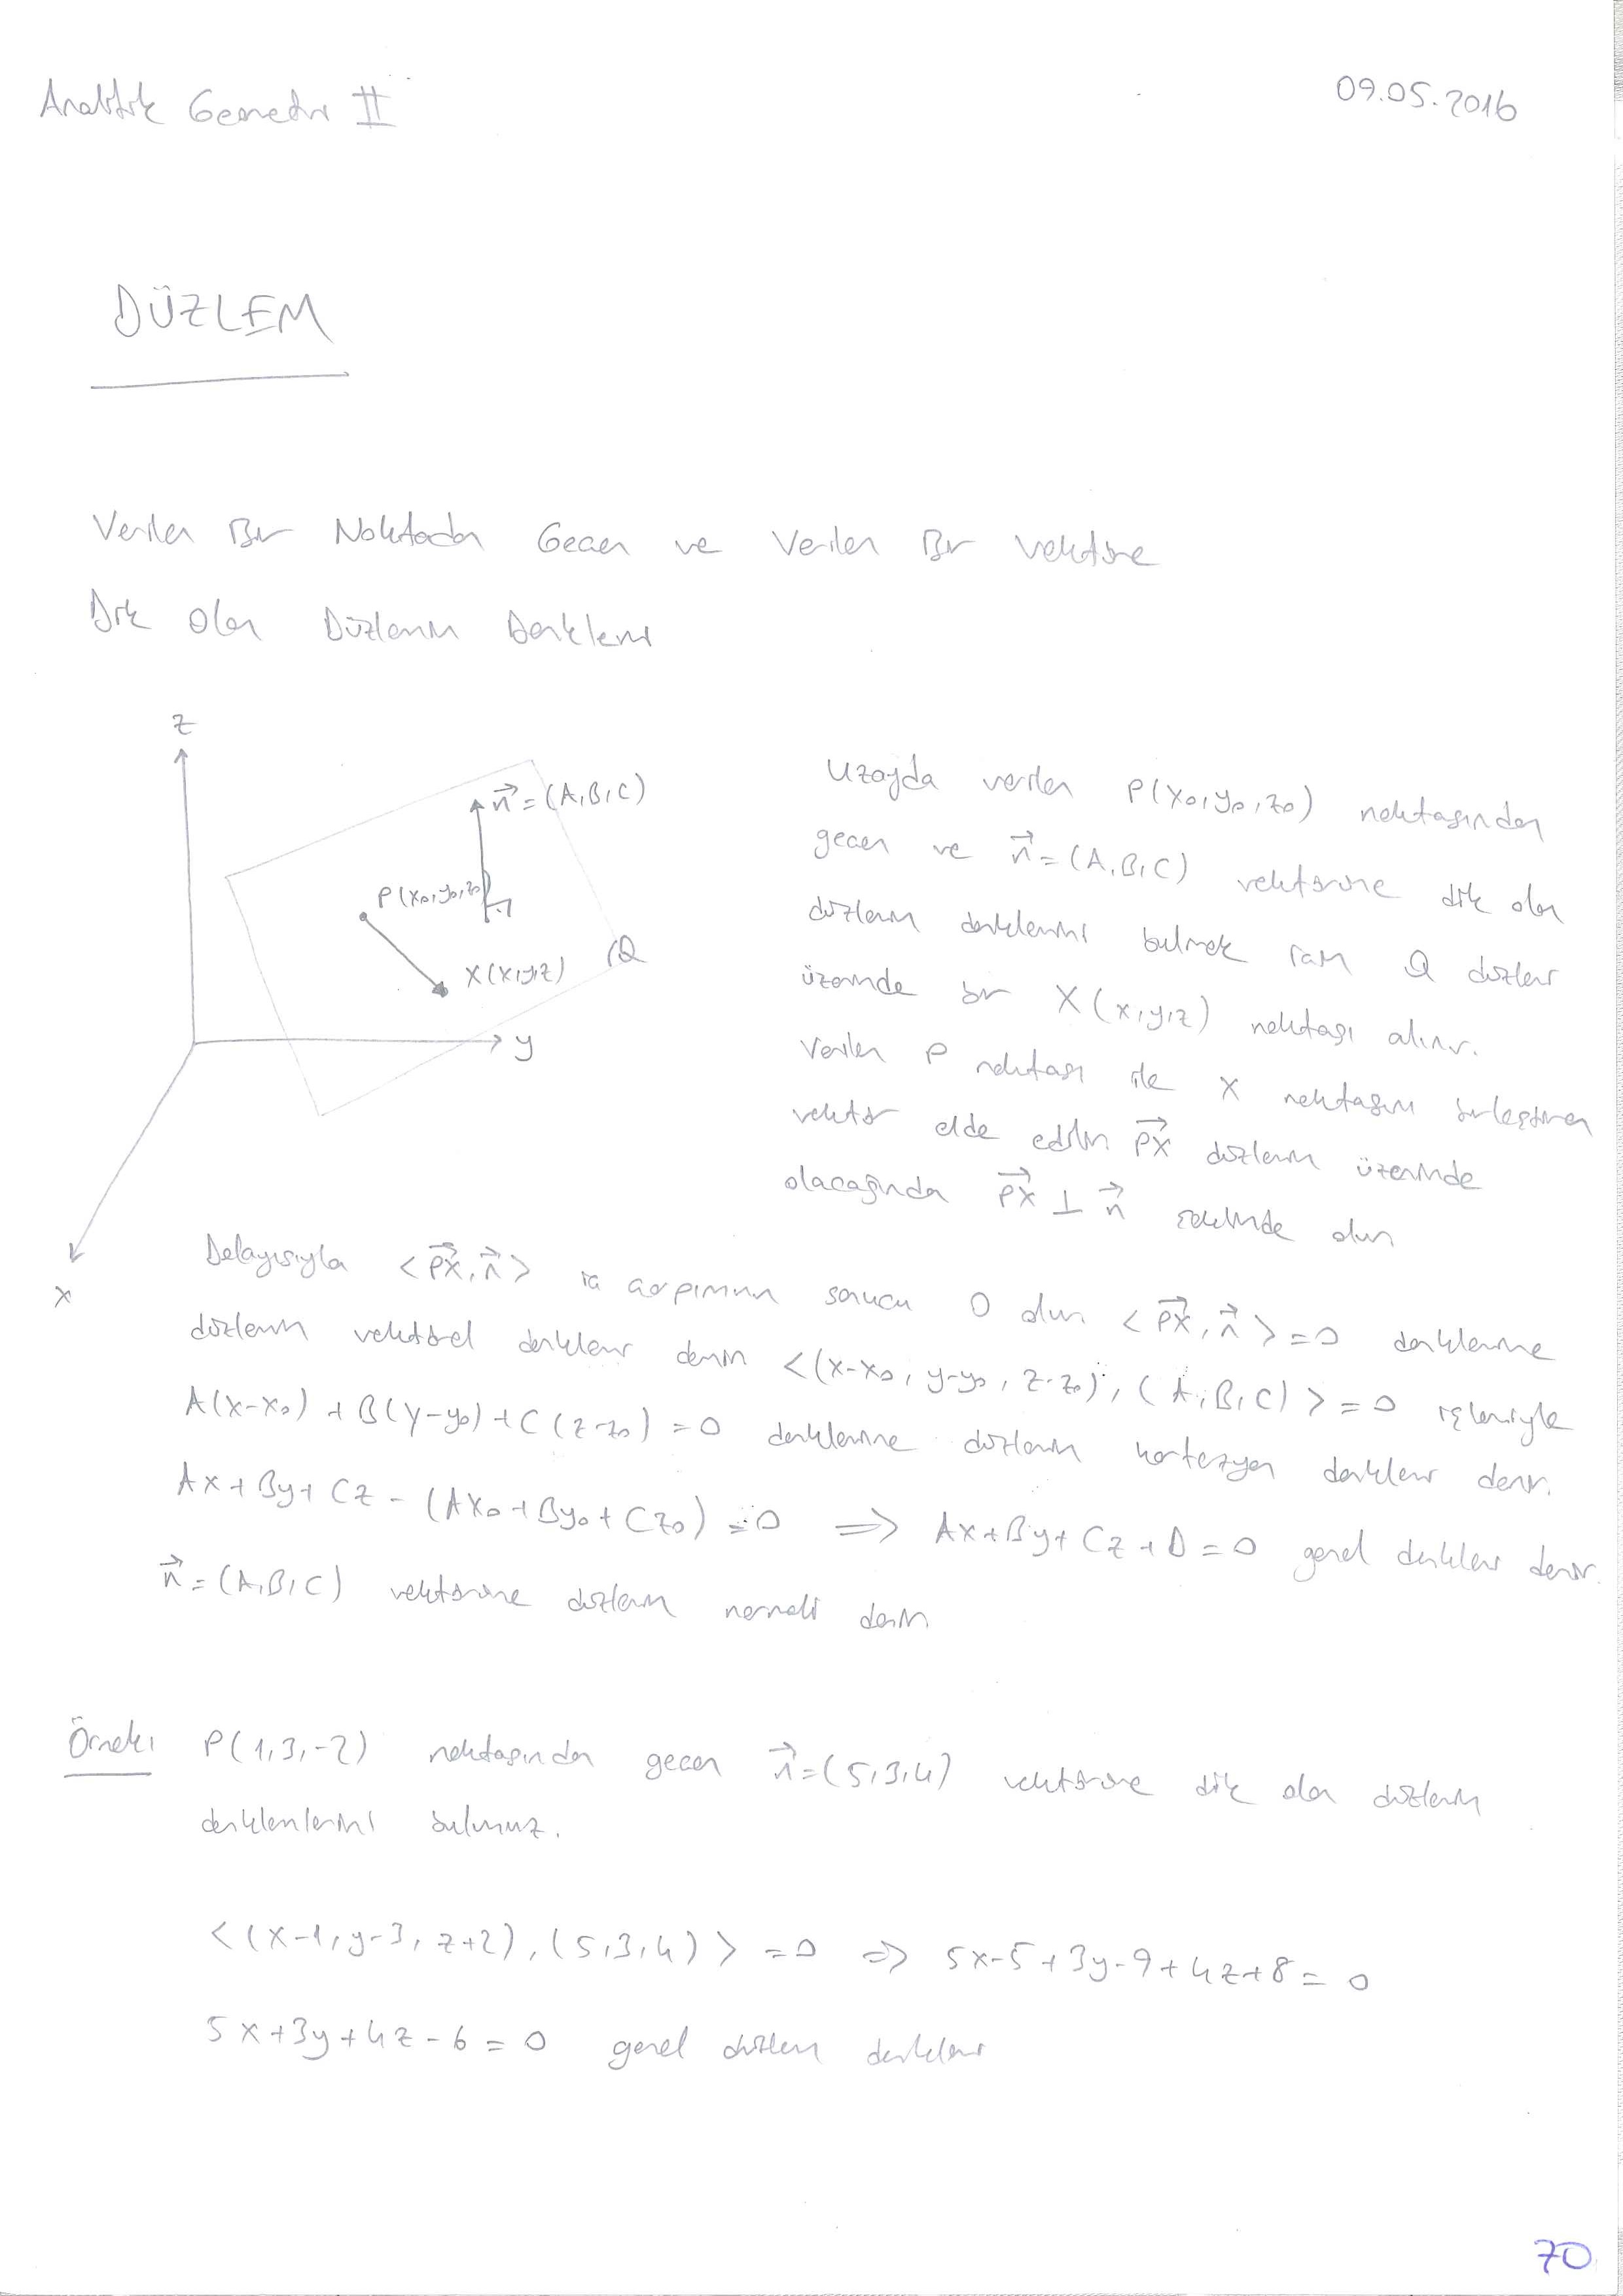 Analitik Geometri II
09.05.2016
DÜZLEM
Verilen Bir Noktadan Geçen ve Verilen Bir Vektöre
Dik Olan Düzlemin Denklemi
z
n⃗ = (A,B,C)
P(x₀,y₀,z₀)
X(x,y,z)
Q
y
x
Uzayda verilen P(x₀,y₀,z₀) noktasından
geçen ve n⃗ = (A,B,C) vektörüne dik olan
düzlemin denklemini bulmak için Q düzlemi
üzerinde bir X(x,y,z) noktası alınır.
Verilen P noktası ile X noktasını birleştiren
vektör elde edilir PX⃗ düzlemin üzerinde
olacağından PX⃗ ⊥ n⃗ şeklinde olur
Dolayısıyla <PX⃗, n⃗> iç çarpımının sonucu 0 olur <PX⃗, n⃗> = 0 denklemine
düzlemin vektörel denklemi denir <(x-x₀, y-y₀, z-z₀), (A,B,C)> = 0 işlemiyle
A(x-x₀) + B(y-y₀) + C(z-z₀) = 0 denklemine düzlemin kartezyen denklemi denir.
Ax + By + Cz - (Ax₀ + By₀ + Cz₀) = 0 ⇒ Ax + By + Cz + D = 0 genel denklemi denir.
n⃗ = (A,B,C) vektörüne düzlemin normali denir
Örnek: P(1,3,-2) noktasından geçen n⃗ = (5,3,4) vektörüne dik olan düzlemin
denklemlerini bulunuz.
<(x-1, y-3, z+2), (5,3,4)> = 0 ⇒ 5x-5+3y-9+4z+8 = 0
5x+3y+4z-6 = 0 genel düzlem denklemi
70